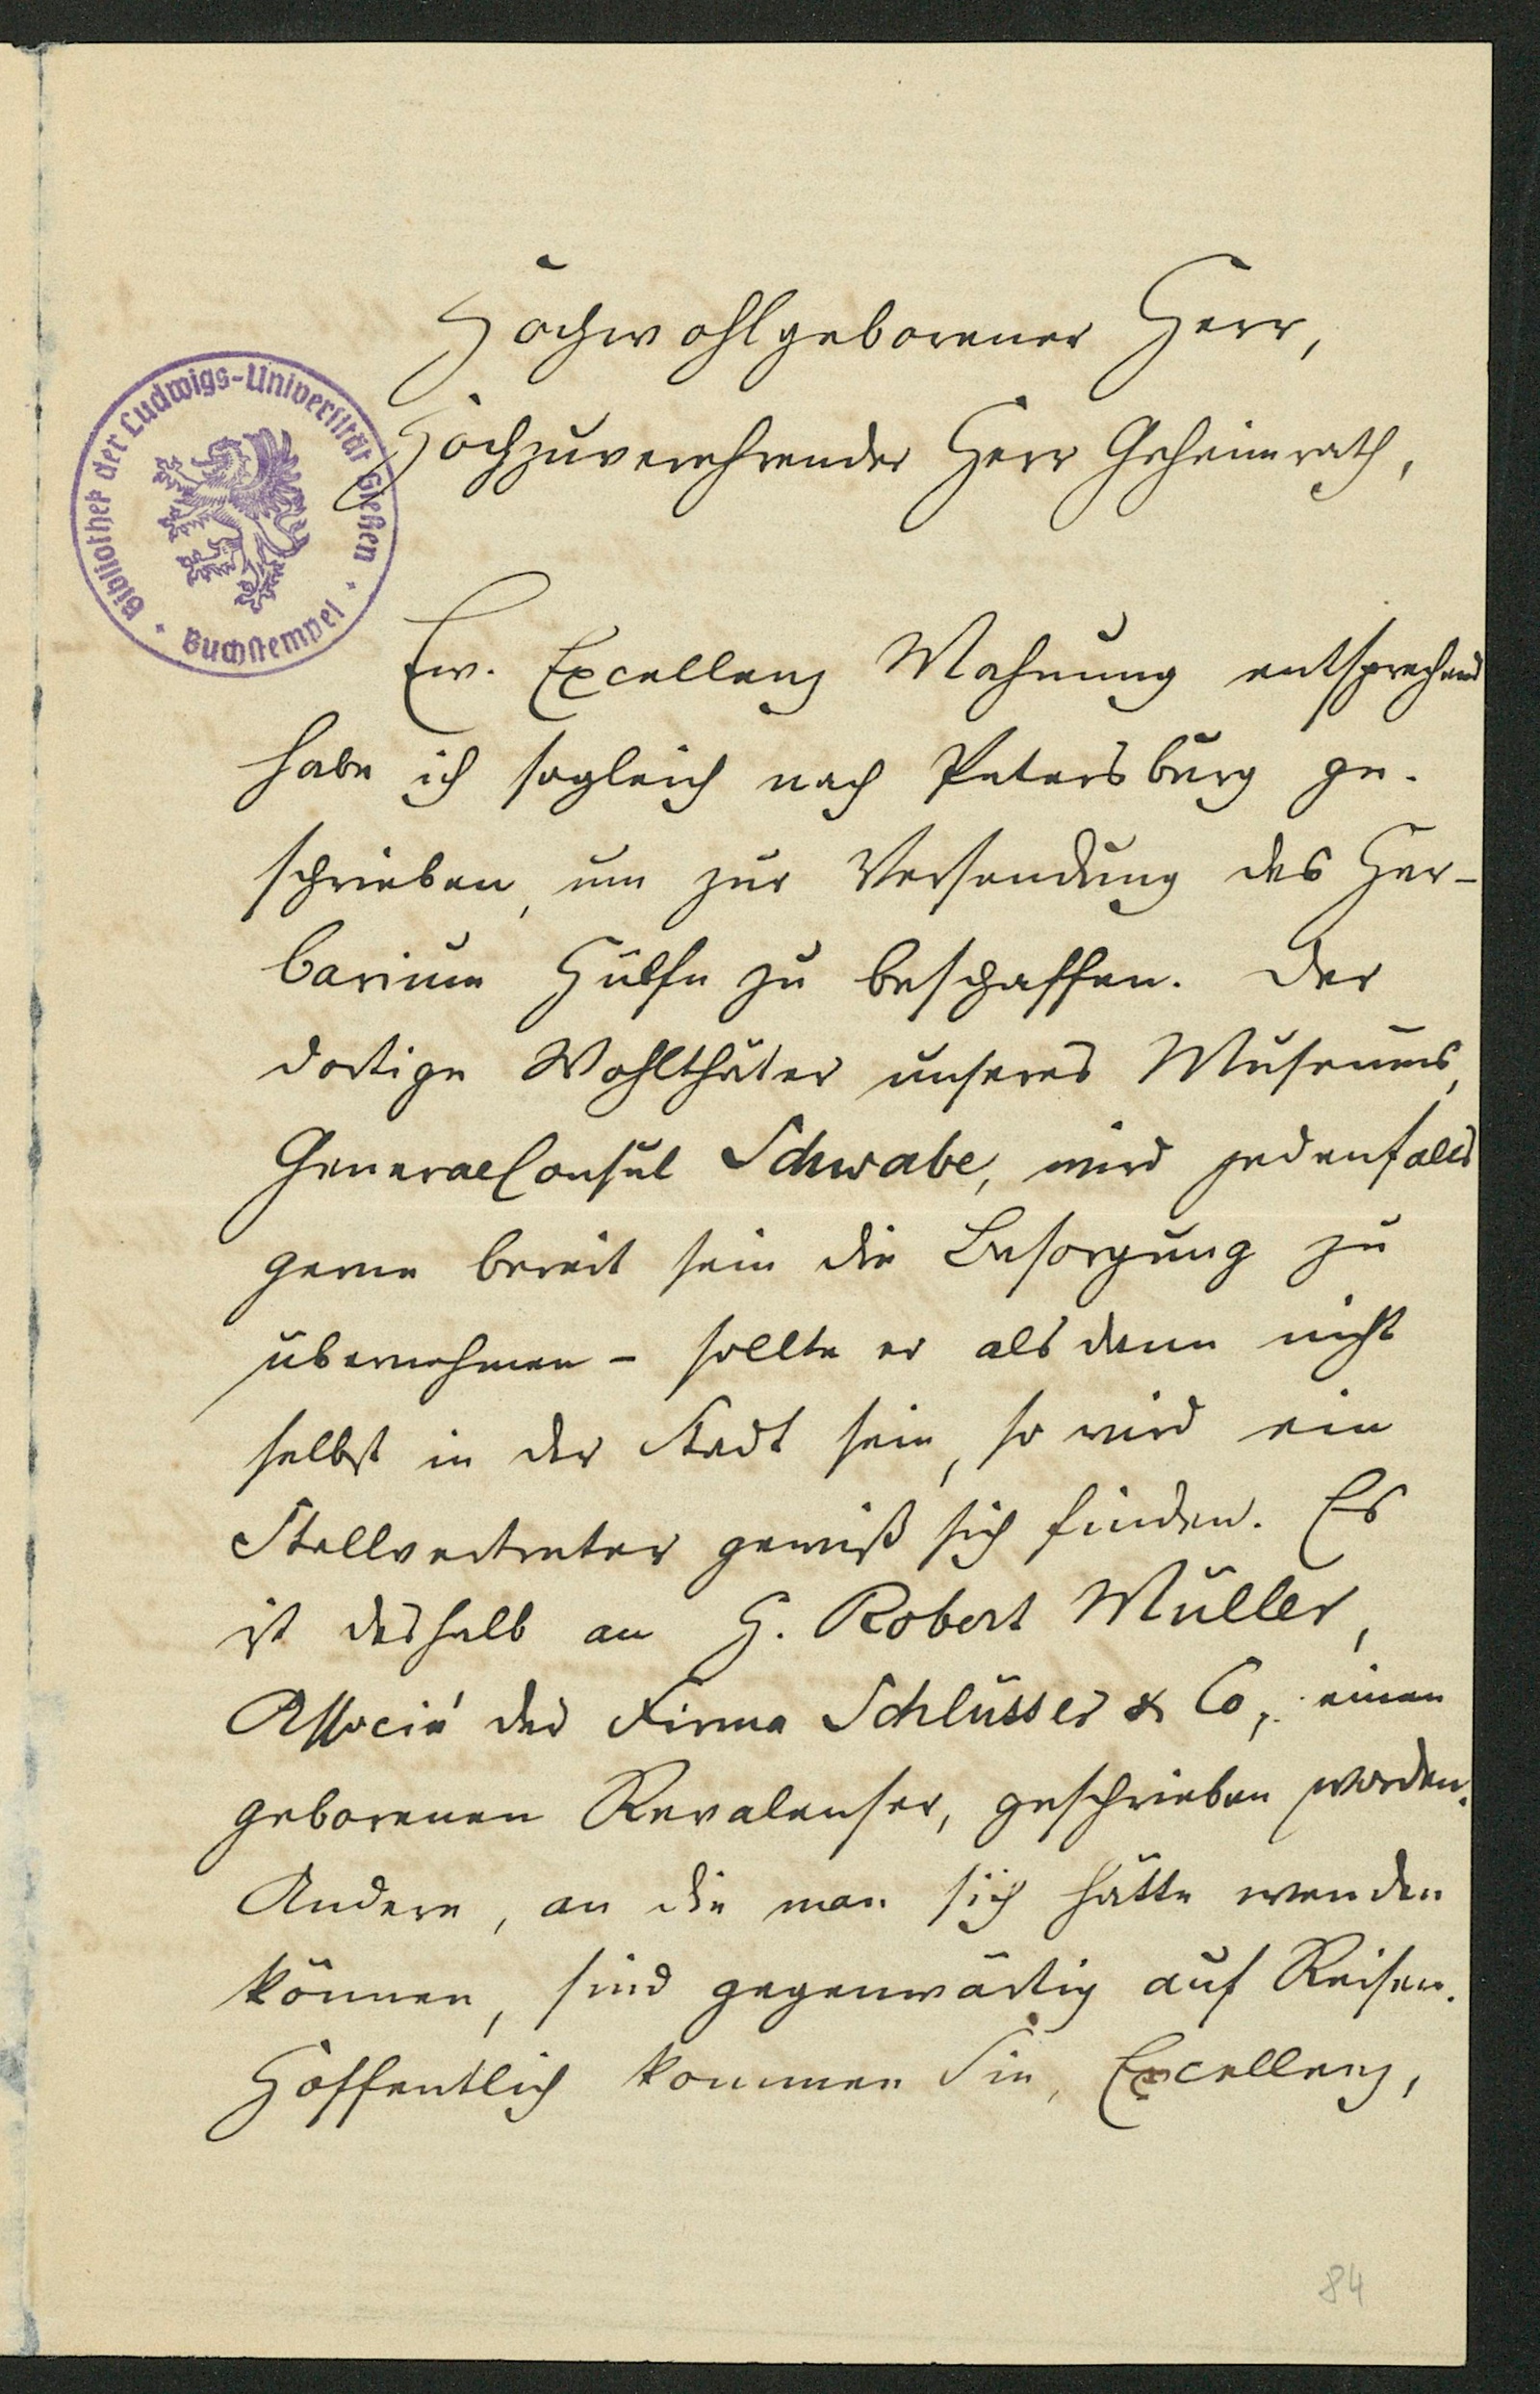 Hochwohlgeborener Herr,
Hochzuverehrender Herr Geheimrath,
Bibliothek der Ludwigs-Universität Gießen
Buchstempel
Ew. Excellenz Mahnung entsprechend
habe ich sogleich nach Petersburg ge-
schrieben, um zur Versendung des Her-
barium Hülfe zu beschaffen. Der
dortige Wohlthäter unseres Museums,
GeneralConsul Schwabe, wird jedenfalls
gerne bereit sein die Besorgung zu
übernehmen – sollte er alsdann nicht
selbst in der Stadt sein, so wird ein
Stellvertreter gewiß sich finden. Es
ist deshalb an H. Robert Müller,
Associé der Firma Schlüsser & Co, einen
geborenen Revalenser, geschrieben worden.
Andere, an die man sich hätte wenden
können, sind gegenwärtig auf Reisen.
Hoffentlich kommen Sie, Excellenz,
84